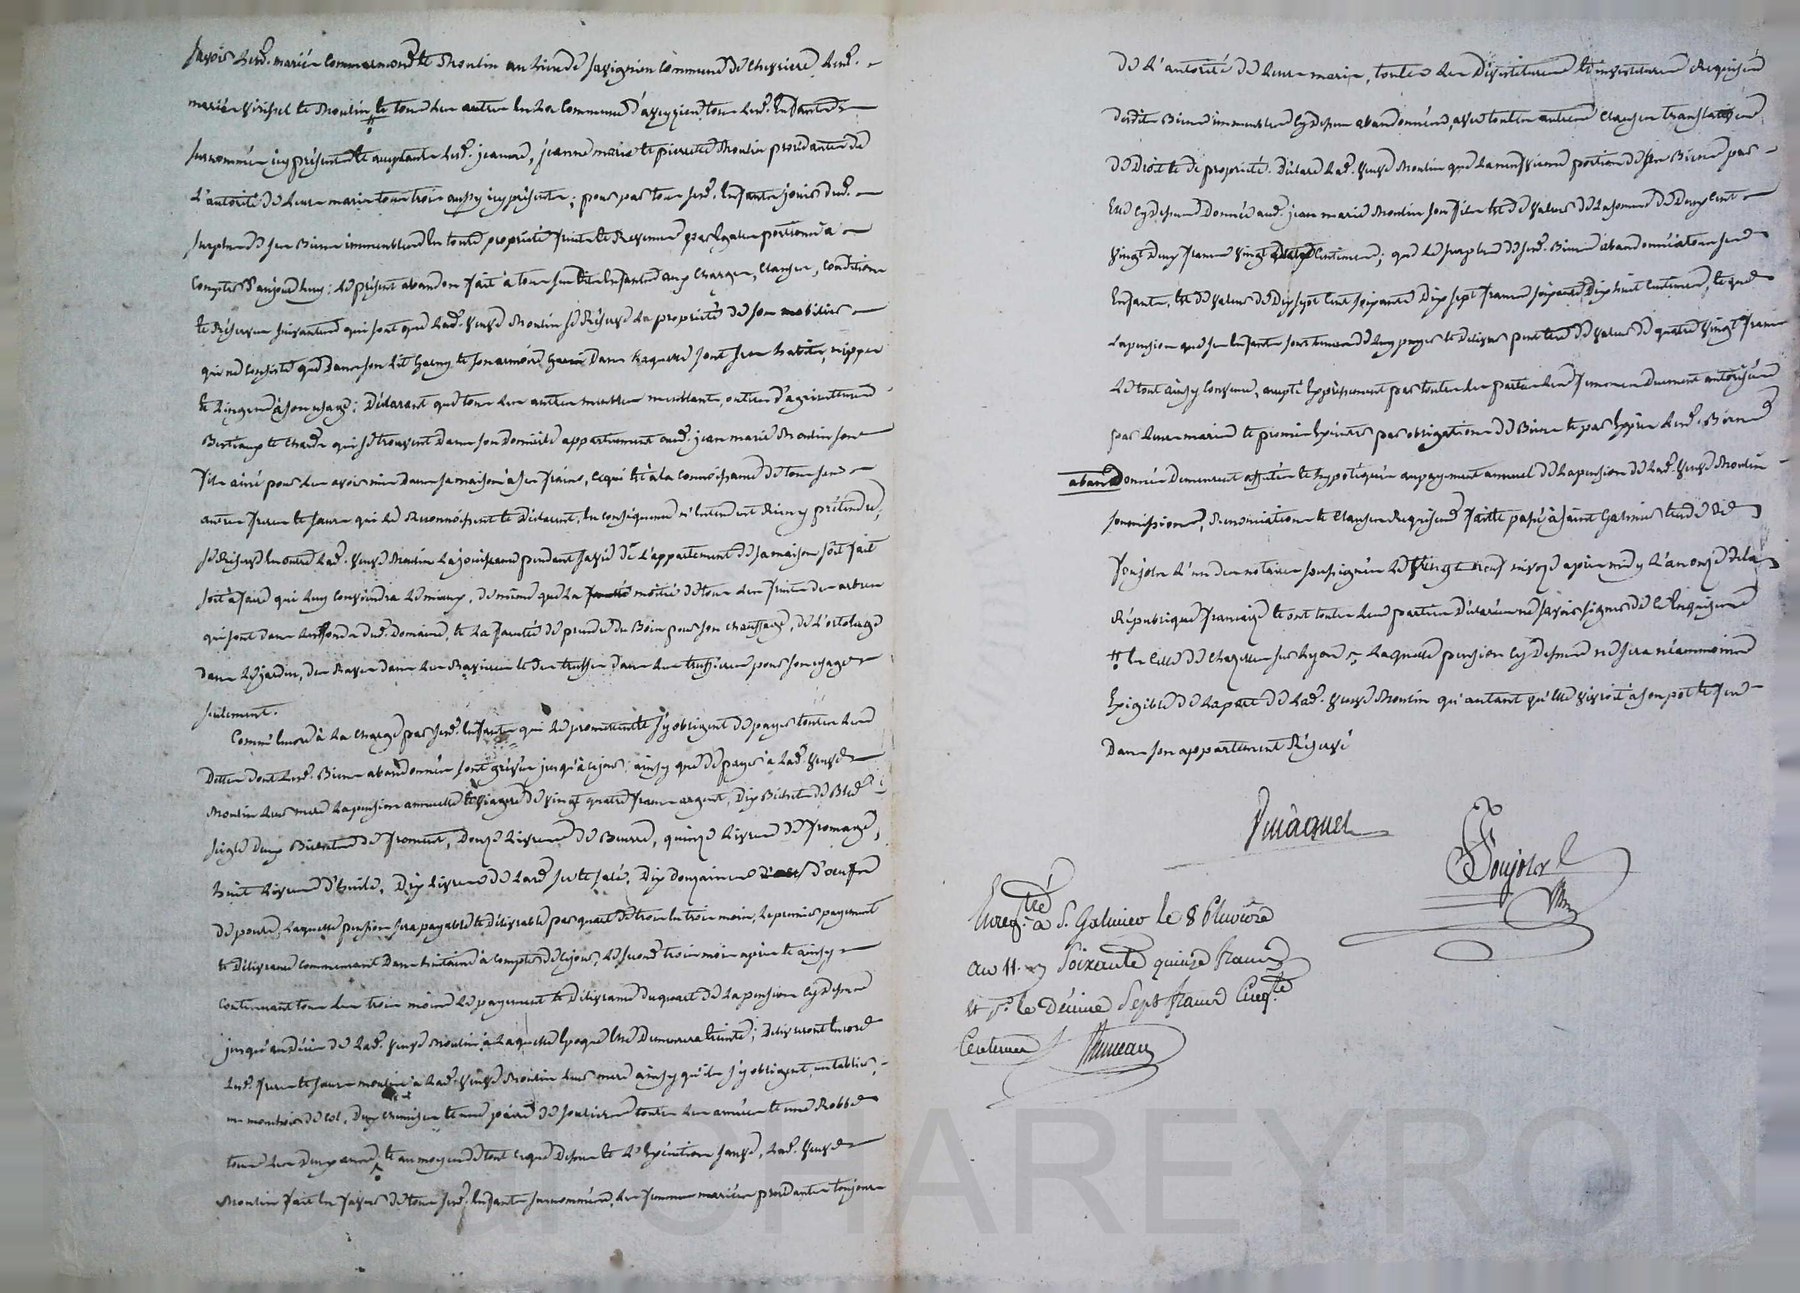 savoir lesd. mariés Commarmond et Moulin au lieu de Savignieu Commune de Chevriere, lesd.
mariés et Moulin, et tous les autres en la Commune d'aveyzieu, tous lesd. Enfants
surnommés icy présents et acceptants lesd. jeanne, jeanne marie et pierrette Moulin procédantes de
L'autorité de leurs maris tous trois aussy icy présents; pour par tous sesd. Enfants jouir dud.
surplus de ses Biens immeubles en toute propriété fruits et Revenus par égales portions à
Compter d'aujourd'huy; Le présent abandon fait à tous sesdits Enfants aux charges, clauses, conditions
et Réserves suivantes qui sont que lad. veuve Moulin se Réserve la propriété de son mobilier
qui ne consiste que dans son lit garny et son armoire dans laquelle sont ses habits, nippes
et linges à son usage; Déclarant que tous les autres meubles meublants, outils d'agriculture
Bestiaux et chars qui se trouvent dans son domicile appartiennent aud. jean marie Moulin son
fils ainé pour les avoir mis dans sa maison à ses frais, ce qui est à la connoissance de tous ses
autres freres et sœurs qui le Reconnoissent et Déclarent, en conséquence n'entendent Rien y prétendre;
se Réserve en outre lad. veuve Moulin la jouissance pendant sa vie de l'appartement de sa maison soit fait
soit à faire qui luy conviendra le mieux, de même que la moitié de tous les fruits des arbres
qui sont dans les fonds dud. Domaine, et la faculté de prendre du Bois pour son chauffage, de l'ortolage
dans le jardin, des Raves dans les Ravieres et des truffes dans les truffieres pour son usage
seulement.
Comme encore à la charge par sesd. Enfants qui le promettent et s'y obligent de payer toutes les
Dettes dont lesd. Biens abandonnés sont grévés jusqu'à ce jour; ainsy que de payer à lad. veuve
Moulin leur mere la pension annuelle et viagere de vingt quatre francs argent, Dix Bichets de Bled
seigle deux Bichets de froment, Douze livres de Beurre, quinze livres de fromage,
huit livres d'huile, Dix livres de lard sec et salé, Dix douzaines d'œufs
de poule, laquelle pension sera payable et délivrable par quart de trois en trois mois, le premier payement
et délivrance commencant dans huitaine à compter de ce jour, le second trois mois après et ainsy
continuant tous les trois mois le payement et délivrance du quart de la pension cy dessus
jusqu'au décès de lad. veuve Moulin, à laquelle époque elle demeurera éteinte; délivreront encore
lesd. freres et sœurs moulin à lad. veuve Moulin leur mere ainsy qu'ils s'y obligent, un tablier,
un mouchoir de col, deux chemises et une paire de souliers toutes les années et une Robbe
tous les deux ans, et au moyen de tout ce que dessus et l'exécution sauve, lad. veuve
Moulin fait en faveur de tous sesd. Enfants surnommés, les femmes mariées procédantes toujours
de l'autorité de leurs maris, toutes les Dévestitures et investitures Requises
desdits Biens immeubles cy dessus abandonnés, avec toutes autres clauses translatives
de Droit et de propriété. Déclare lad. veuve Moulin que la portion de ses Biens par
Elle cy dessus Donnée aud. jean marie Moulin son fils est de valeur de la somme de Deux cent
vingt deux francs vingt Centimes; que le surplus de sesd. Biens abandonnés à tous ses
Enfants, est de valeur de Dix sept cent soixante Dix sept francs soixante Dix huit Centimes, et que
la pension que ses Enfants sont tenus de luy payer et délivrer peut être de valeur de quatre vingt francs
Le tout ainsy convenu, accepté Expressement par toutes les parties les femmes duement autorisées
par leurs maris et promis Exécuter par obligation de Biens et par Exprès lesd. Biens
abandonnés demeurent affectés et hypotéqués au payement annuel de la pension de lad. veuve Moulin
soumissions, Renonciations et clauses Requises. fait et passé à saint Galmier Etude de
Poujols l'un des notaires soussignés le vingt neuf nivoze après midy l'an onze de la
République francaise et ont toutes les parties Déclaré ne savoir signer de ce Enquises
en celle de chazelles sur lyon laquelle pension cy dessus ne sera néammoins
Exigible de la part de lad. veuve Moulin qu'autant qu'elle vivroit à son pot et feu
Dans son appartement Réservé
Poujols
Enreg.tré à S. Galmier le 8 Pluviôse
an 11. Soixante quinze francs
et p.r le Décime Sept francs Cinq.te
Centimes